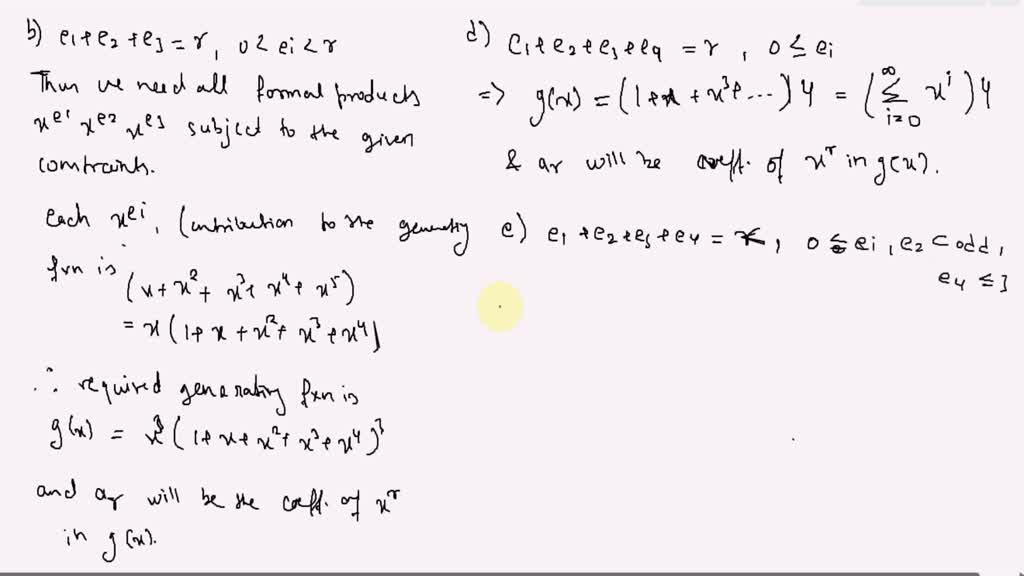 b) e₁+e₂+e₃ = r, 0 < ei < r
Thus we need all formal products
x^e1 x^e2 x^e3 subject to the given
constraints.
Each x^ei, contribution to the generating
fxn is
(x+x²+x³+x⁴+x⁵)
= x(1+x+x²+x³+x⁴)
∴ required generating fxn is
g(x) = x³(1+x+x²+x³+x⁴)³
and ar will be the coeff. of x^r
in g(x).
d) e₁+e₂+e₃+e₄ = r, 0 ≤ ei
=> g(x) = (1+x+x³+...)4 = (∞ Σ i=0 x^i)4
& ar will be coeff. of x^r in g(x).
e) e₁+e₂+e₃+e₄ = r, 0 ≤ ei, e₂ ⊂ odd,
e₄ ≤ 3